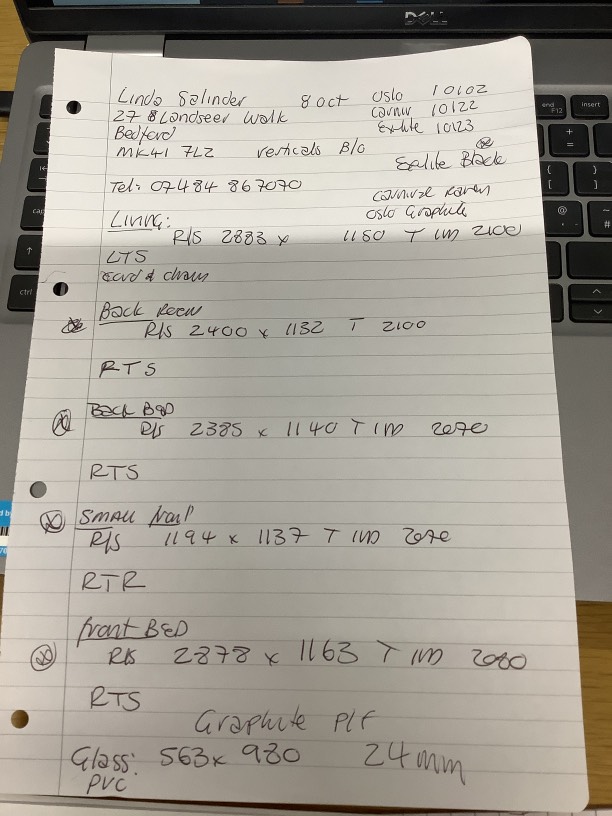 DELL
Linda Salinder 8 oct Oslo 10102
27 Landseer Walk Carniv 10122
Bedford Exlite 10123
MK41 7LZ verticals B/O
Exlite Black
Tel: 07484 867070 carnival Raven
Oslo Graphite
Living:
R/S 2883 x 1180 T IID 2100
LTS
cord & chain
Back Room
R/S 2400 x 1132 T 2100
RTS
Back BED
R/S 2385 x 1140 T IID 2070
RTS
SMALL front
R/S 1194 x 1137 T IID 2070
RTR
front BED
R/S 2878 x 1163 T IID 2080
RTS
Graphite P/F
Glass: 563 x 980 24mm
PVC